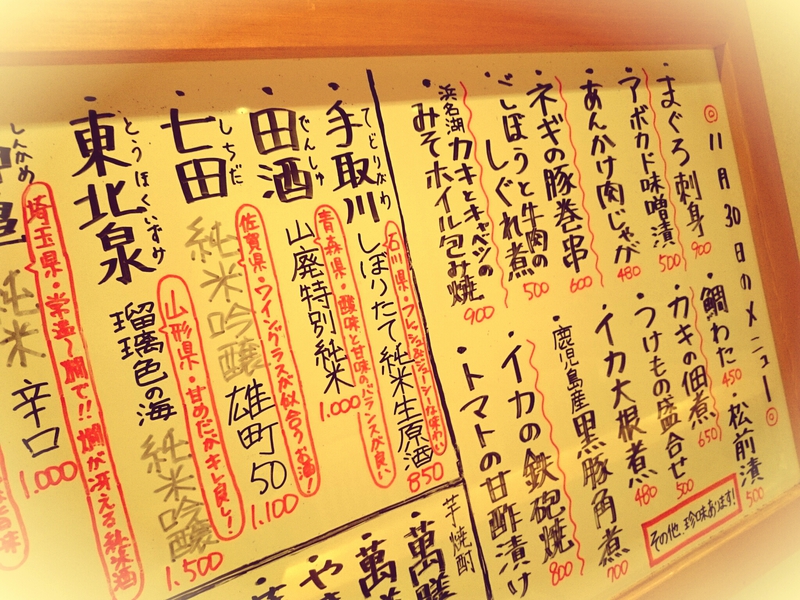 ◎11月30日のメニュー◎
・まぐろ刺身 900
・アボカド味噌漬 500
・あんかけ肉じゃが 480
・ネギの豚巻串 600
・ごぼうと牛肉の
しぐれ煮 500
・浜名湖カキとキャベツの
みそホイル包み焼 900
・鯛わた 450
・松前漬 500
・カキの佃煮 650
・つけもの盛合せ 500
・イカ大根煮 480
・鹿児島産黒豚角煮 700
・イカの鉄砲焼 800
・トマトの甘酢漬け
その他、珍味あります!
・手取川 てどりがわ
しぼりたて純米生原酒 850
石川県・フレッシュ&ジューシーな味わい
・田酒 でんしゅ
山廃特別純米 1.000
青森県・酸味と甘味のバランスが良い
・七田 しちだ
純米吟醸 雄町50 1.100
佐賀県・ワイングラスが似合うお酒!
・東北泉 とうほくいずみ
瑠璃色の海 純米吟醸 1.500
山形県・甘めだがキレ良し!
しんかめ
純米 辛口 1.000
埼玉県・常温〜燗で!!燗が冴える純米酒
芋焼酎
・萬膳
・萬
・や